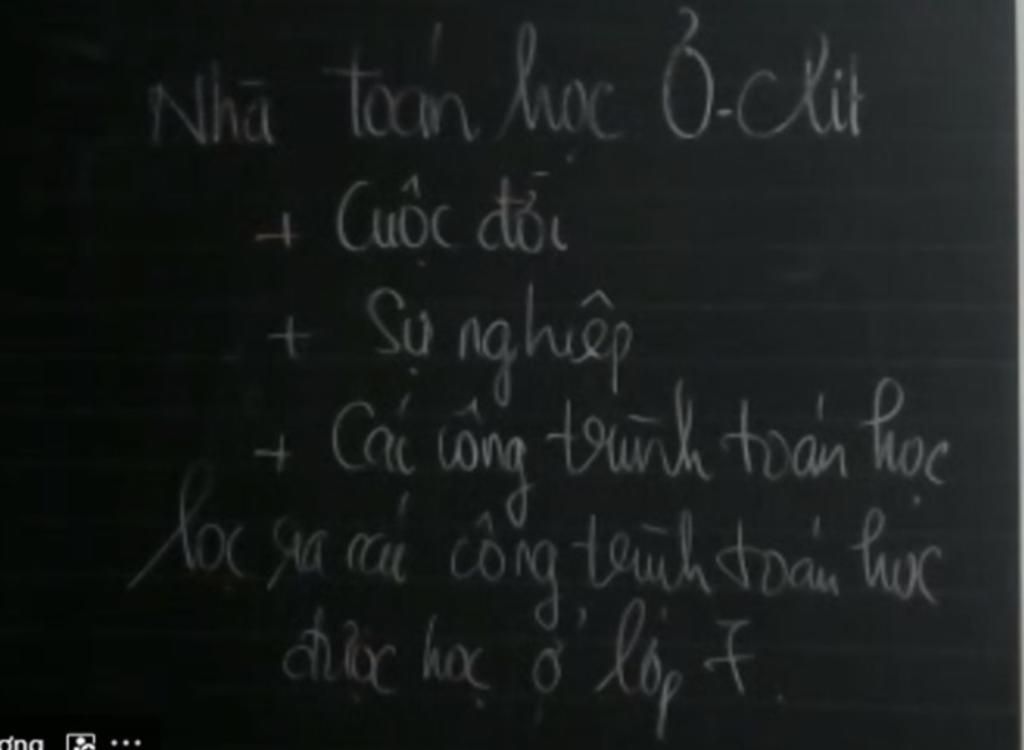 Nhà toán học Ơ-clit
+ Cuộc đời
+ Sự nghiệp
+ Các công trình toán học
lọc ra các công trình toán học
được học ở lớp 7.
ơng ...